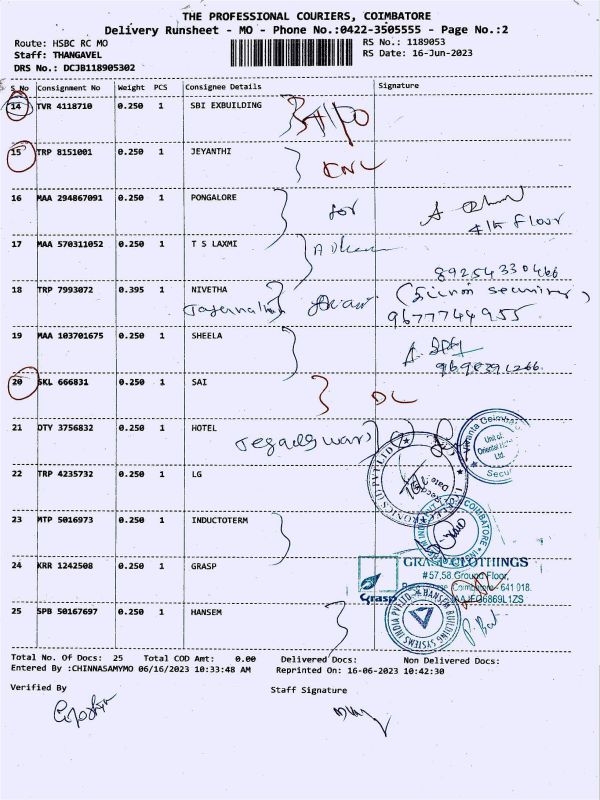 THE PROFESSIONAL COURIERS, COIMBATORE
Delivery Runsheet - MO - Phone No.:0422-3505555 - Page No.:2
Route: HSBC RC MO RS No.: 1189053
Staff: THANGAVEL RS Date: 16-Jun-2023
DRS No.: DCJB118905302
S No Consignment No Weight PCS Consignee Details Signature
14 TVR 4118710 0.250 1 SBI EXBUILDING
15 TRP 8151001 0.250 1 JEYANTHI
CNL
16 MAA 294867091 0.250 1 PONGALORE
for
4th Floor
17 MAA 570311052 0.250 1 T S LAXMI
89254330466
18 TRP 7993072 0.395 1 NIVETHA
9677744955
19 MAA 103701675 0.250 1 SHEELA
20 SKL 666831 0.250 1 SAI
DL
21 OTY 3756832 0.250 1 HOTEL
Unit of
Oriental
Ltd.
22 TRP 4235732 0.250 1 LG
23 MTP 5016973 0.250 1 INDUCTOTERM
COIMBATORE
24 KRR 1242508 0.250 1 GRASP
GRASP CLOTHINGS
#57,58 Ground Floor,
Coimbatore - 641 018.
Grasp
25 SPB 50167697 0.250 1 HANSEM
HANSEM BUILDING SYSTEMS INDIA PVT LTD
Total No. Of Docs: 25 Total COD Amt: 0.00 Delivered Docs: Non Delivered Docs:
Entered By :CHINNASAMYMO 06/16/2023 10:33:48 AM Reprinted On: 16-06-2023 10:42:30
Verified By Staff Signature